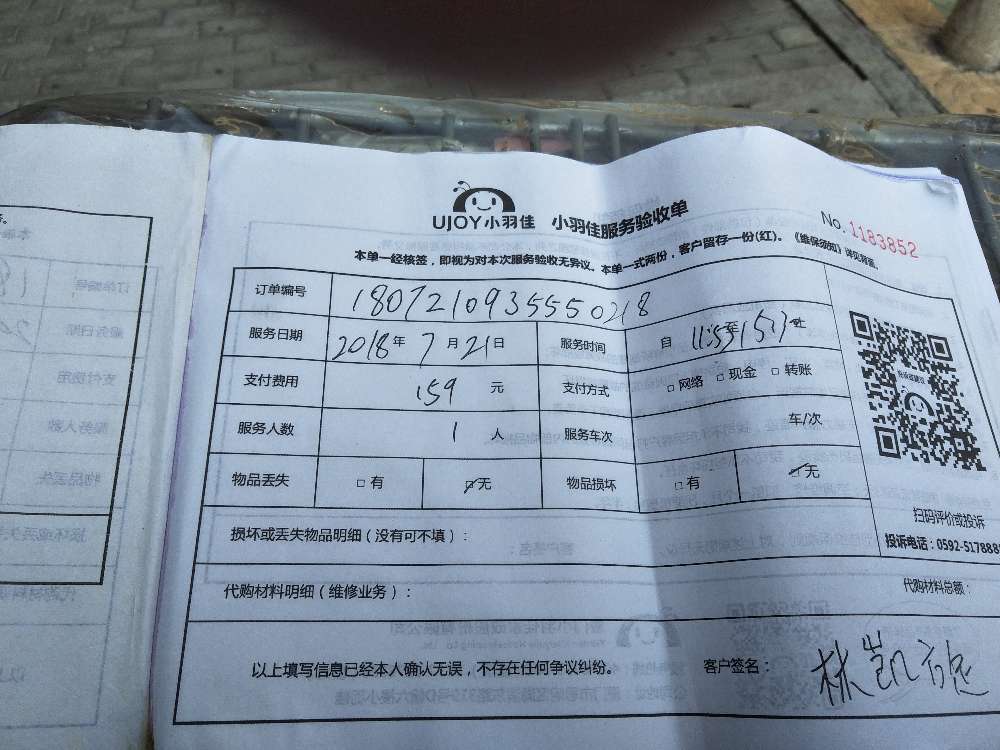 UJOY小羽佳 小羽佳服务验收单
No. 1183852
本单一经核签，即视为对本次服务验收无异议。本单一式两份，客户留存一份(红)。《维保须知》详见背面。
订单编号 1807210935550218
服务日期 2018年7月21日 服务时间 自 11:53 至 15:13 止
支付费用 159 元 支付方式 □网络 □现金 □转账
服务人数 1 人 服务车次 车/次
物品丢失 □有 ☑无 物品损坏 □有 ☑无
扫码评价或投诉
损坏或丢失物品明细（没有可不填）：
投诉电话：0592-517888
代购材料明细（维修业务）： 代购材料总额：
以上填写信息已经本人确认无误，不存在任何争议纠纷。 客户签名： 林凯